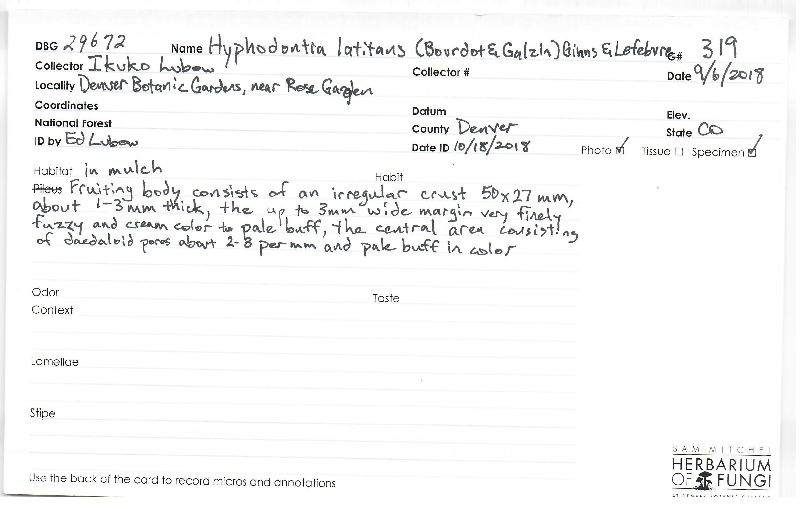 DBG 29672 Name Hyphodontia latitans (Bourdot & Galzin) Ginns & Lefebvre # 319
Collector Ikuko Lubow Collector # Date 9/6/2018
Locality Denver Botanic Gardens, near Rose Garden
Coordinates Datum Elev.
National Forest County Denver State CO
ID by Ed Lubow Date ID 10/18/2018 Photo ☑ Tissue ☐ Specimen ☑
Habitat in mulch Habit
Pileus Fruiting body consists of an irregular crust 50x27 mm,
about 1-3mm thick, the up to 3mm wide margin very finely
fuzzy and cream color to pale buff, the central area consisting
of daedaloid pores about 2-8 per mm and pale buff in color
Odor Taste
Context
Lamellae
Stipe
Use the back of the card to record micros and annotations
SAM MITCHEL
HERBARIUM
OF FUNGI